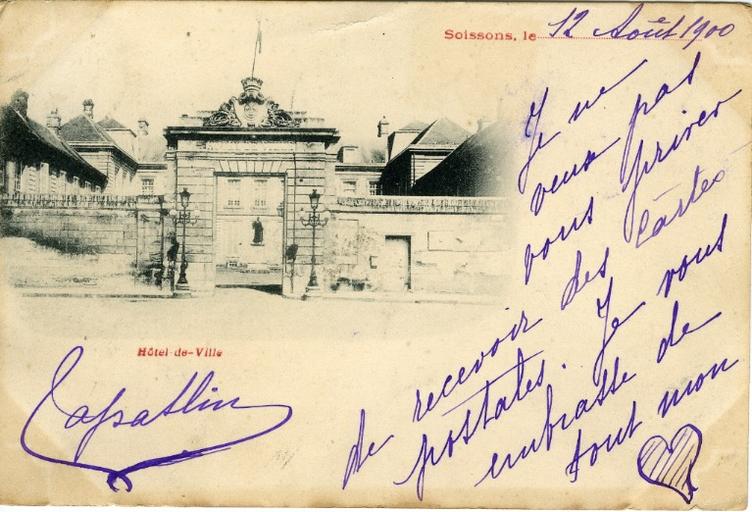 Soissons, le 12 Août 1900
Je ne
veux pas
vous priver
de recevoir des Cartes
postales. Je vous
embrasse de
tout mon
Hôtel-de-Ville